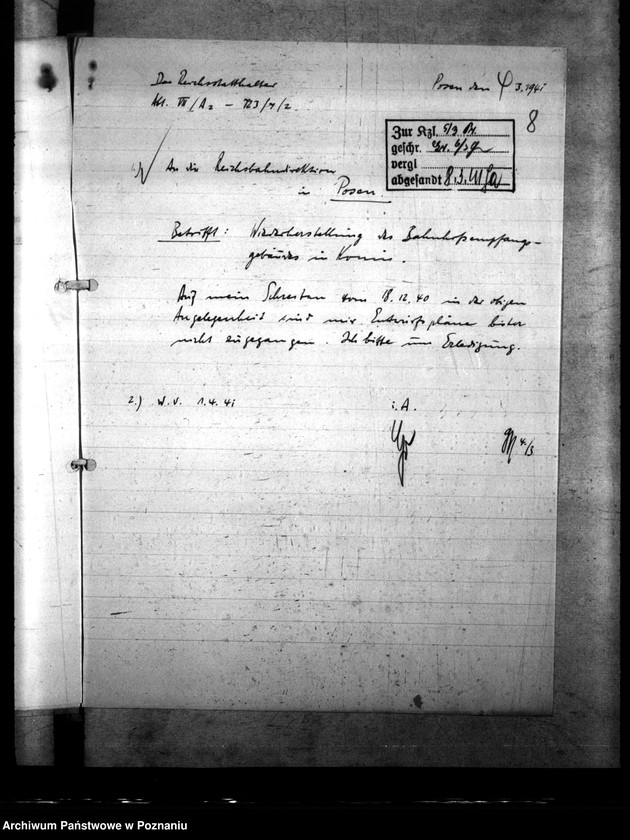 Der Reichsstatthalter
Posen den 4 3.1941
Akt. VII/A2 - 723/7/2.
8
Zur Kzl. 5/3
geschr. 6/3
vergl
abgesandt 8.3.
1) An die Reichsbahndirektion
in Posen.
Betrifft: Wiederherstellung des Bahnhofsempfangs-
gebäudes in Konin.
Auf mein Schreiben vom 18.12.40 in der obigen
Angelegenheit sind mir Entwurfspläne bisher
nicht zugegangen. Ich bitte um Erledigung.
2.) W.V. 1.4.41
i.A.
4/3
Archiwum Państwowe w Poznaniu